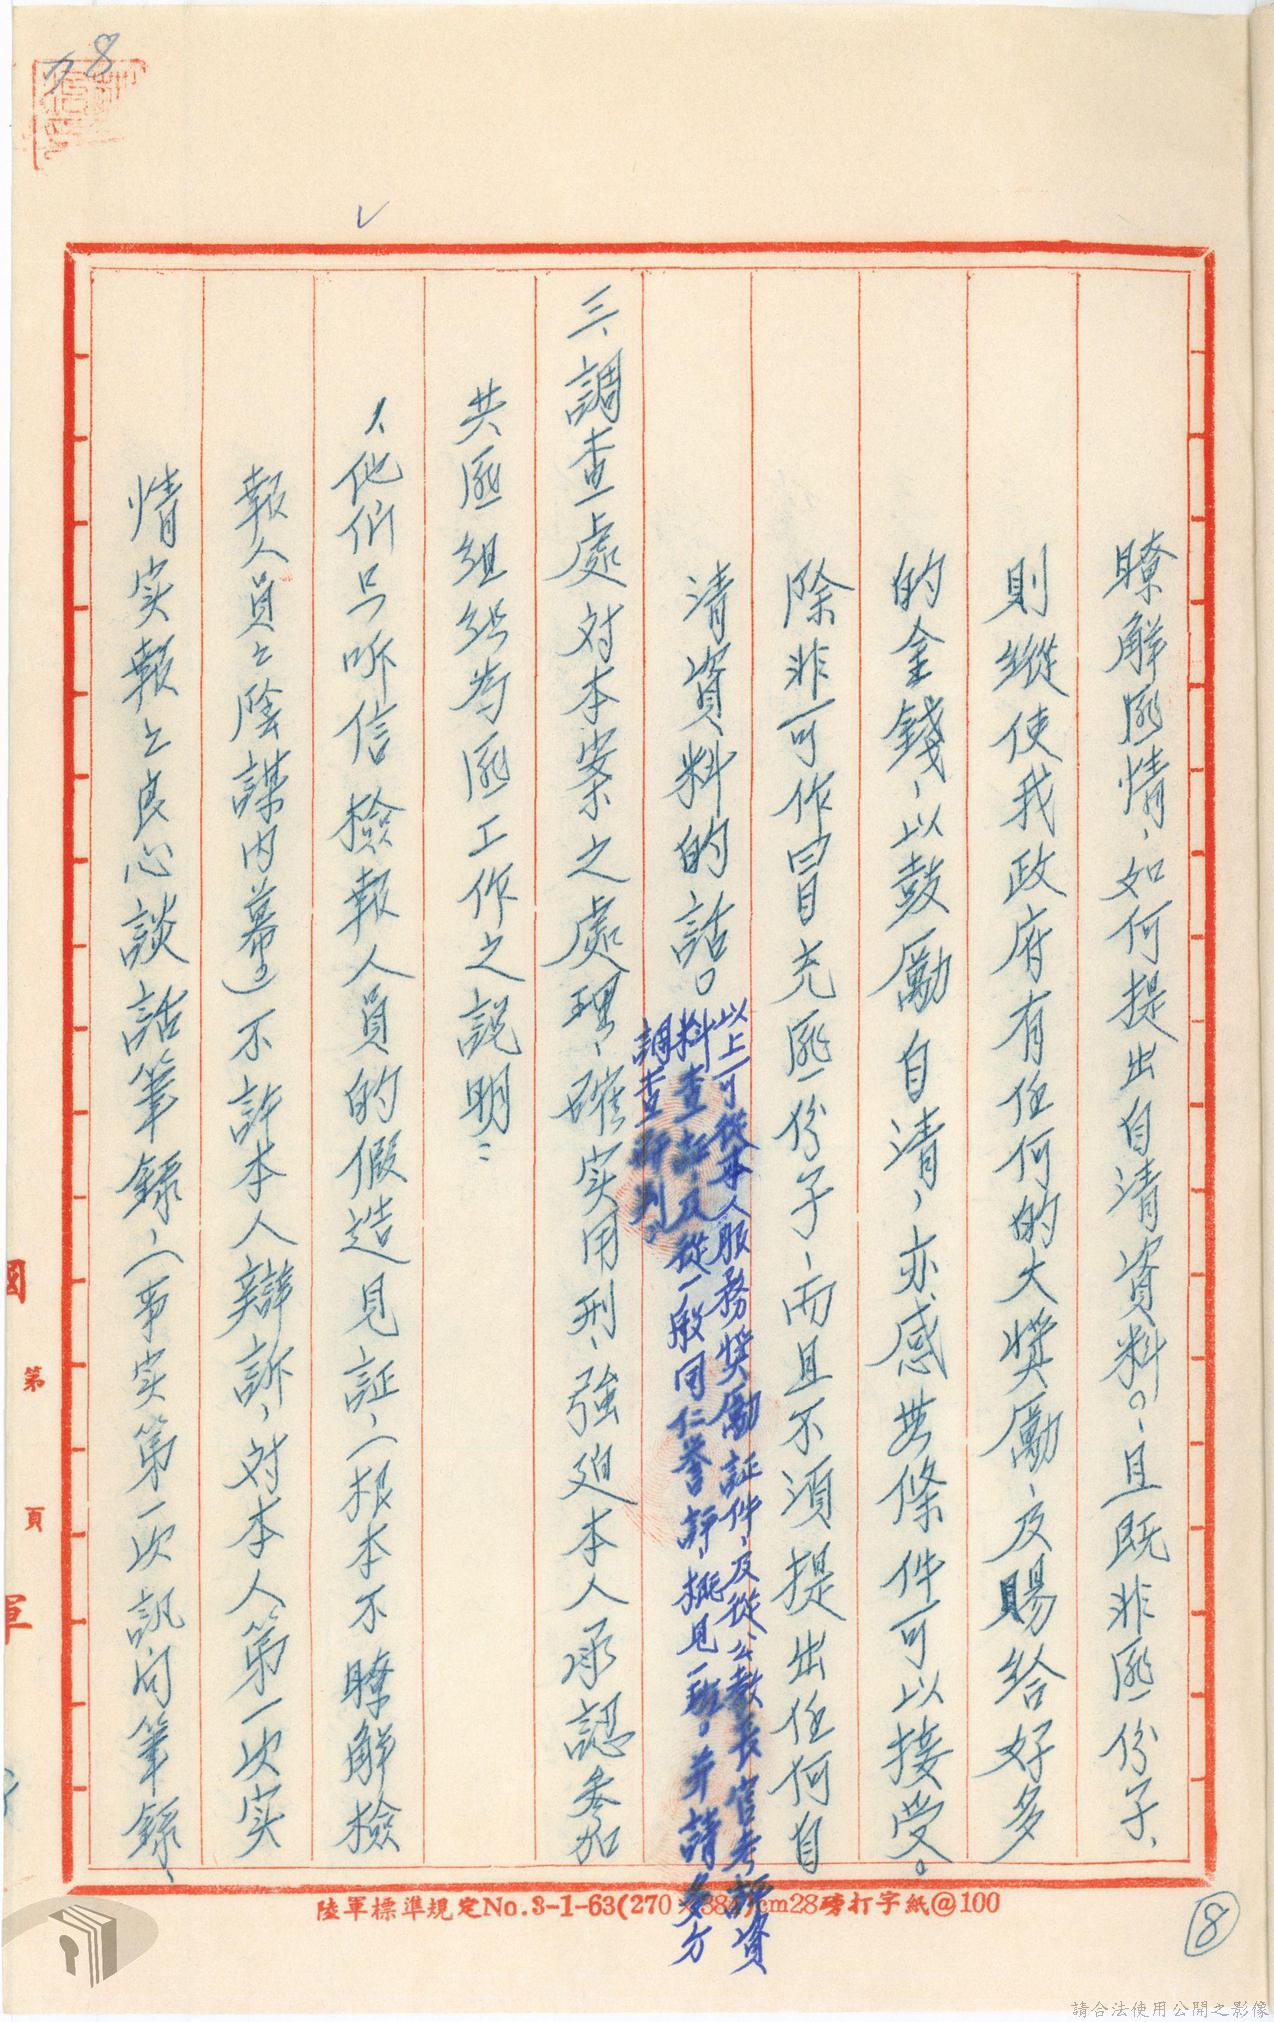 瞭解匪情，如何提出自清資料。，且既非匪份子、
則縱使我政府有任何的大獎勵，及賜給好多
的金錢，以鼓勵自清，亦感無條件可以接受。
除非可作冒充匪份子，而且不須提出任何自
清資料的話。
以上可從本人服務獎勵証件，及從公教長官考評資
料查証，及從一般同仁譽評，概見一班。并請多方
調查研判，
三、調查處對本案之處理，確实用刑，強迫本人承認參加
共匪組織為匪工作之説明：
1、他们只听信檢報人員的假造見証，（根本不瞭解檢
報人員之陰謀內幕。）不許本人辯訴，对本人第一次实
情实報之良心談話筆錄，（事实第一次訊问筆錄、
國
第
頁
軍
陸軍標準規定No.3-1-63(270×384)cm28磅打字紙@100
8
請合法使用公開之影像